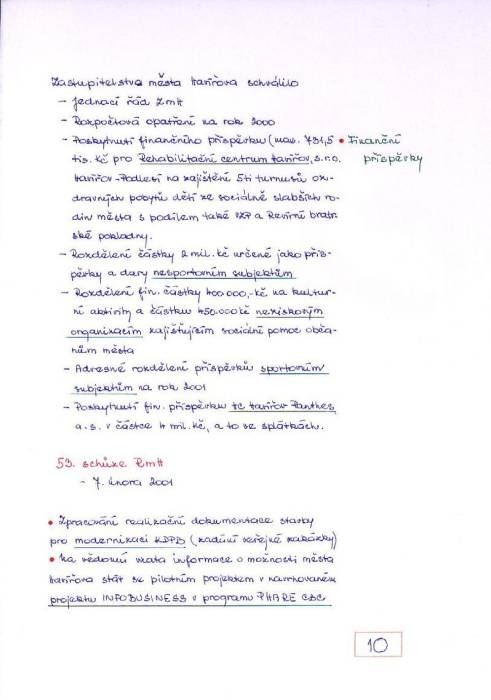 Zastupitelstvo města Havířova schválilo
- Jednací řád ZmH
- Rozpočtová opatření na rok 2000
- Poskytnutí finančního příspěvku (max. 731,5 • Finanční
tis. Kč pro Rehabilitační centrum Havířov, s.r.o. příspěvky
Havířov-Podlesí na zajištění 5ti turnusů oz-
dravných pobytů dětí ze sociálně slabších ro-
din města s podílem také VZP a Revírní bratr-
ské pokladny.
- Rozdělení částky 2 mil. Kč určené jako přís-
pěvky a dary nesportovním subjektům
- Rozdělení fin. částky 400 000,-Kč na kultur-
ní aktivity a částku 450.000 Kč neziskovým
organizacím zajišťujícím sociální pomoc obča-
nům města
- Adresné rozdělení příspěvků sportovním
subjektům na rok 2001
- Poskytnutí fin. příspěvku HC Havířov Panthers,
a.s. v částce 4 mil. Kč, a to ve splátkách.
53. schůze RmH
- 7. února 2001
• Zpracování realizační dokumentace stavby
pro modernizaci KDPB (zadání veřejné zakázky)
• Na vědomí vzata informace o možnosti města
Havířova stát se pilotním projektem v navrhovaném
projektu INFOBUSINESS v programu PHARE CBC
10